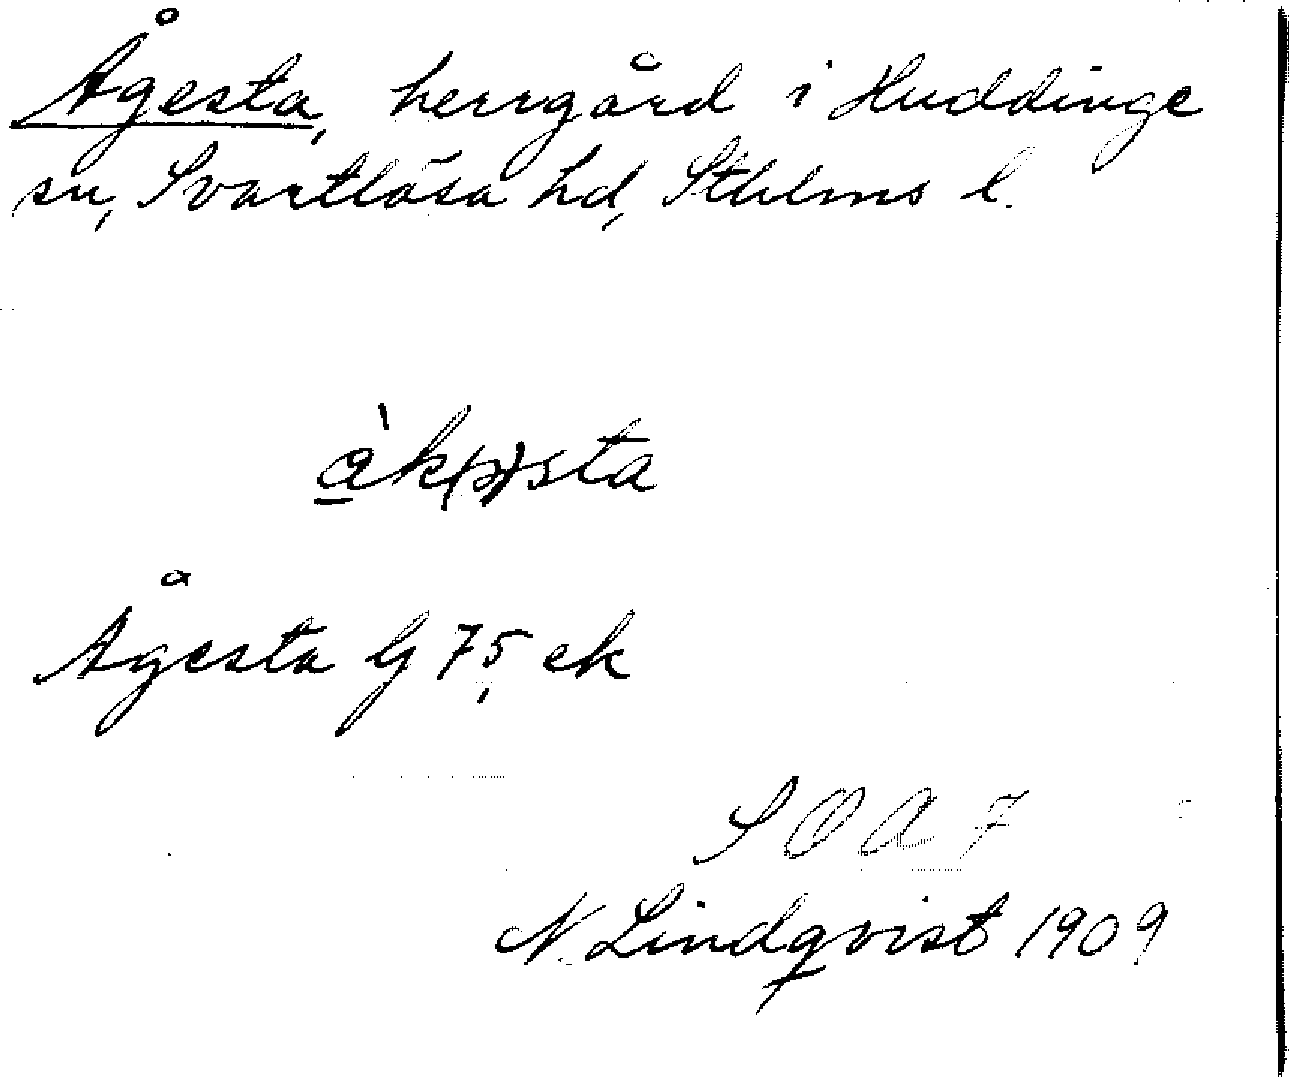 Ågesta, herrgård i Huddinge
sn, Svartlösa hd, Sthlms l.
a̱̍k(ə)sta
Ågesta G 75, ek
S O A 7
N. Lindqvist 1909